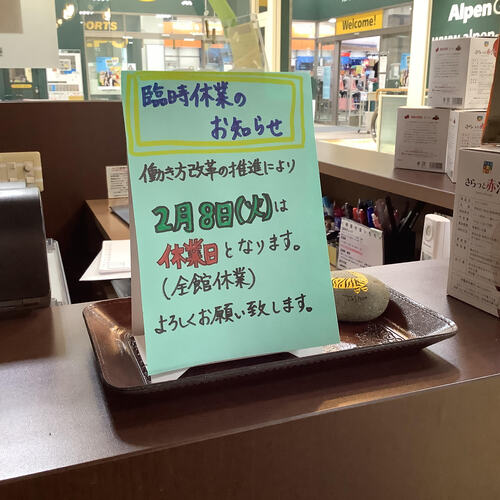 臨時休業の
お知らせ
働き方改革の推進により
2月8日(火)は
休業日となります。
(全館休業)
よろしくお願い致します。
Welcome!
Alpen
PORTS
さらっと赤